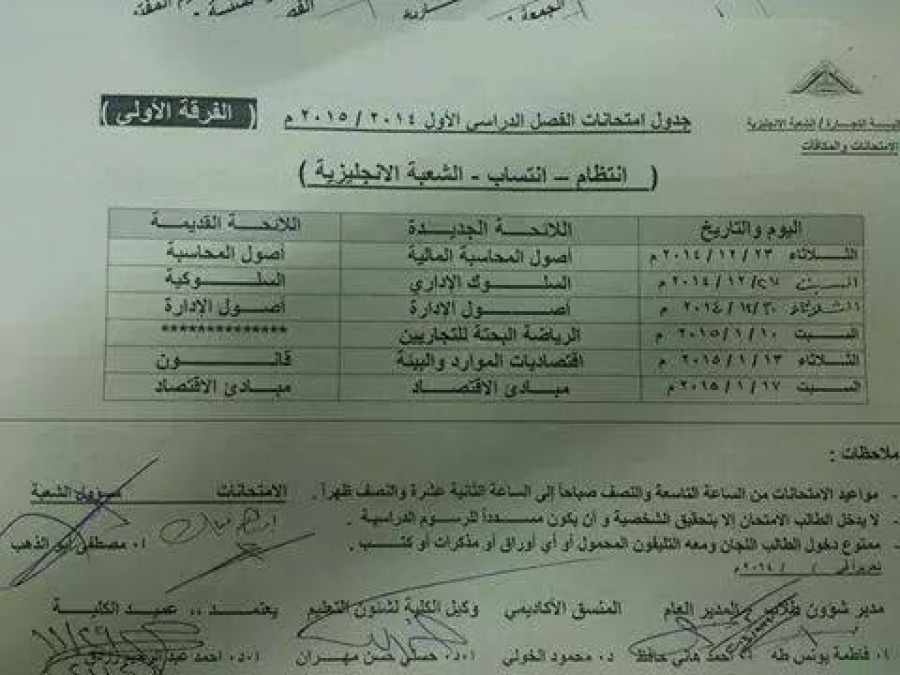 الجمعة
كلية التجارة / الشعبة الانجليزية
الامتحانات والمكافآت
جدول امتحانات الفصل الدراسي الأول ٢٠١٤ / ٢٠١٥ م ( الفرقة الأولي )
( انتظام – انتساب - الشعبة الانجليزية )
اليوم والتاريخ اللائحة الجديدة اللائحة القديمة
الثلاثاء ٢٣ / ١٢ / ٢٠١٤ م أصول المحاسبة المالية أصول المحاسبة
السبت ٢٧ / ١٢ / ٢٠١٤ م السلوك الإداري السلوكية
الثلاثاء ٣٠ / ١٢ / ٢٠١٤ م أصول الادارة أصول الإدارة
السبت ١٠ / ١ / ٢٠١٥ م الرياضة البحتة للتجاريين **************
الثلاثاء ١٣ / ١ / ٢٠١٥ م اقتصاديات الموارد والبيئة قانون
السبت ١٧ / ١ / ٢٠١٥ م مبادئ الاقتصاد مبادئ الاقتصاد
ملاحظات :
- مواعيد الامتحانات من الساعة التاسعة والنصف صباحاً إلى الساعة الثانية عشرة والنصف ظهراً . الامتحانات مسؤول الشعبة
- لا يدخل الطالب الامتحان إلا بتحقيق الشخصية و أن يكون مسدداً للرسوم الدراسية .
- ممنوع دخول الطالب اللجان ومعه التليفون المحمول أو أي أوراق أو مذكرات أو كتب . أ. مصطفى أبو الذهب
تحريراً في / / ٢٠١٤م
مدير شؤون طلاب والمدير العام المنسق الأكاديمي وكيل الكلية لشئون التعليم يعتمد ،، عميد الكلية
أ. فاطمة يونس طه أ. أحمد هاني حافظ د. محمود الخولي ا.د. حسني حسن مهران ا.د. احمد عبد الرحيم رزق